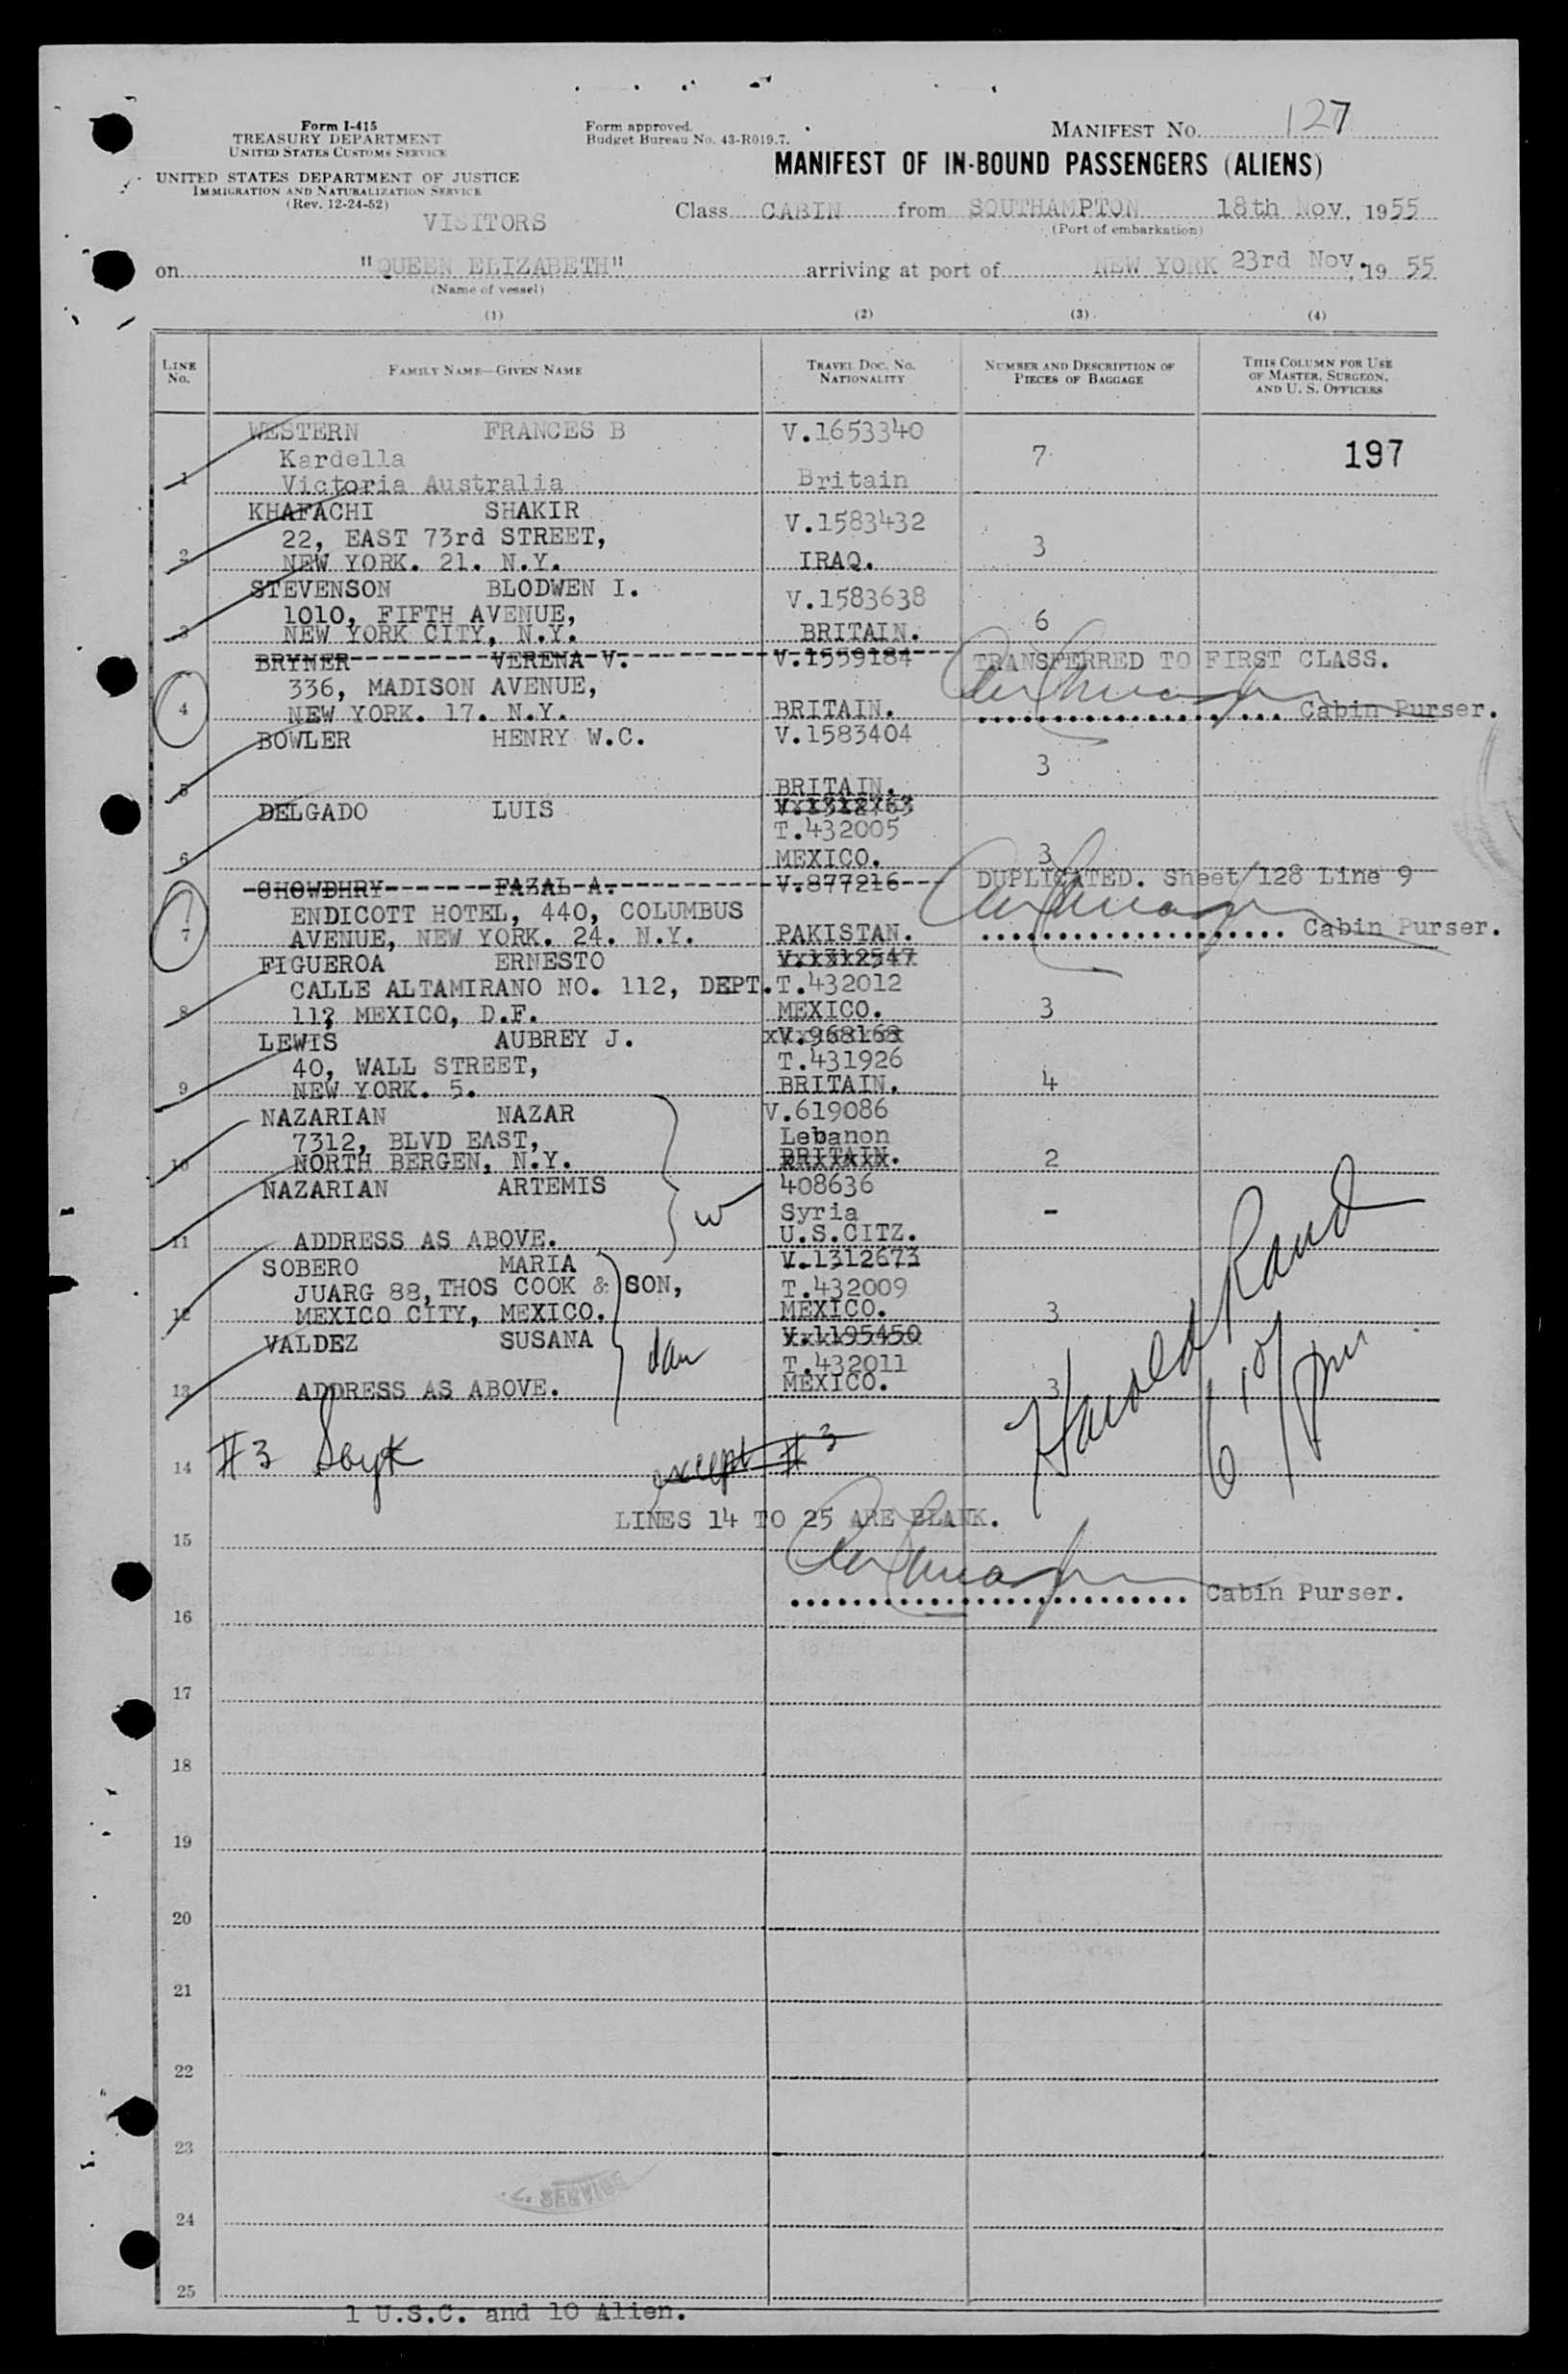 Form I-415
TREASURY DEPARTMENT
UNITED STATES CUSTOMS SERVICE
UNITED STATES DEPARTMENT OF JUSTICE
IMMIGRATION AND NATURALIZATION SERVICE
(Rev. 12-24-52)
VISITORS
Form approved.
Budget Bureau No. 43-R019.7.
MANIFEST NO. 127
MANIFEST OF IN-BOUND PASSENGERS (ALIENS)
Class CABIN from SOUTHAMPTON 18th Nov, 1955
(Port of embarkation)
on "QUEEN ELIZABETH" arriving at port of NEW YORK 23rd Nov., 19 55
(Name of vessel)
(1) (2) (3) (4)
LINE No. FAMILY NAME—GIVEN NAME TRAVEL DOC. NO. NATIONALITY NUMBER AND DESCRIPTION OF PIECES OF BAGGAGE THIS COLUMN FOR USE OF MASTER, SURGEON, AND U. S. OFFICERS
WESTERN FRANCES B V.1653340
Kardella 7 197
1 Victoria Australia Britain
KHAFACHI SHAKIR V.1583432
22, EAST 73rd STREET, 3
2 NEW YORK. 21. N.Y. IRAQ.
STEVENSON BLODWEN I. V.1583638
1010, FIFTH AVENUE, 6
3 NEW YORK CITY, N.Y. BRITAIN.
BRYNER VERENA V. V.1559184 TRANSFERRED TO FIRST CLASS.
336, MADISON AVENUE,
4 NEW YORK. 17. N.Y. BRITAIN. Cabin Purser.
BOWLER HENRY W.C. V.1583404
3
5 BRITAIN.
DELGADO LUIS V.1312763
T.432005
6 MEXICO. 3
CHOWDHRY FAZAL A. V.877216 DUPLICATED. Sheet 128 Line 9
ENDICOTT HOTEL, 440, COLUMBUS
7 AVENUE, NEW YORK. 24. N.Y. PAKISTAN. Cabin Purser.
FIGUEROA ERNESTO V.1312547
CALLE ALTAMIRANO NO. 112, DEPT. T.432012
8 112 MEXICO, D.F. MEXICO. 3
LEWIS AUBREY J. V.968168
40, WALL STREET, T.431926
9 NEW YORK. 5. BRITAIN. 4
NAZARIAN NAZAR V.619086
7312, BLVD EAST, Lebanon
10 NORTH BERGEN, N.Y. BRITAIN. 2
NAZARIAN ARTEMIS 408636
W Syria -
11 ADDRESS AS ABOVE. U.S.CITZ.
SOBERO MARIA V.1312673
JUARG 88, THOS COOK & SON, T.432009
12 MEXICO CITY, MEXICO. MEXICO. 3
VALDEZ SUSANA V.1195450
T.432011
13 ADDRESS AS ABOVE. MEXICO. 3
Harold Rand
14 #3 except #3
LINES 14 TO 25 ARE BLANK.
15
Cabin Purser.
16
17
18
19
20
21
22
23
SERVICE
24
25
1 U.S.C. and 10 Alien.